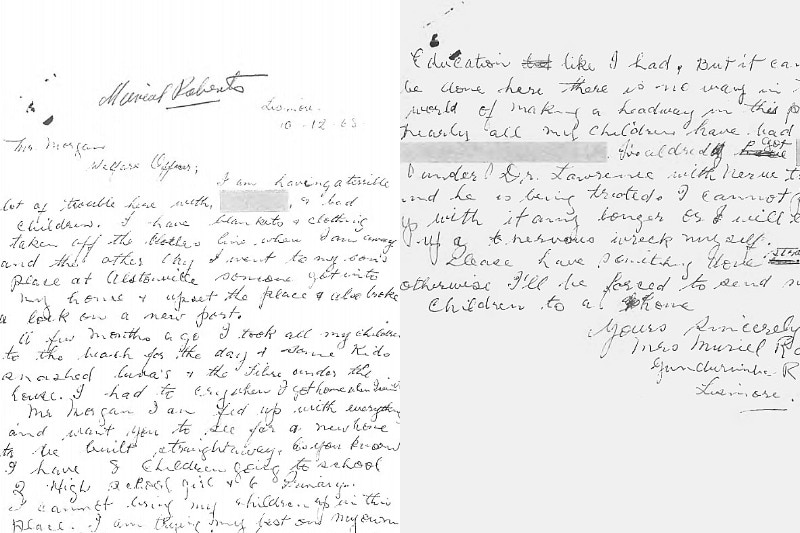 Muriel Roberts
Lismore.
10-12-65.
Mr. Morgan
Welfare Officer;
I am having a terrible
lot of trouble here with, & bad
children. I have blankets & clothing
taken off the clothes line when I am away
and the other day I went to my son's
place at Alstonville someone got into
my home & upset the place & also broke
a lock on a new port.
A few months ago I took all my children
to the beach for the day & some kids
smashed & the fibre under the
house. I had to cry when I got home
Mr Morgan I am fed up with everything
and want you to see for a new home
to be built straightaway as you know
I have 8 Children going to school
2 High School girl & 6 Primary.
I cannot bring my children up in this
place. I am trying my best on my own
Education like I had, But it can
be done here there is no way in
world of making a headway in this p
nearly all my children have had
got
under Dr. Lawrence with nerve
and he is being treated. I cannot
up with it any longer or I will
up a nervous wreck myself.
Please have something done
otherwise I'll be forced to send
children to a home
Yours Sincerely
Mrs Muriel Ro
R
Lismore.